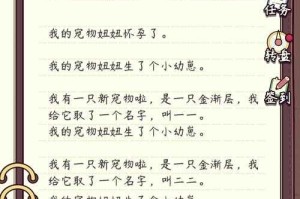 我的宠物妞妞怀孕了。
我的宠物妞妞生了个小幼崽。
我有一只新宠物啦，是一只金渐层，我
给它取了一个名字，叫一一。
我的宠物妞妞生了个小幼崽。
我有一只新宠物啦，是一只金渐层，我
给它取了一个名字，叫二二。
我的宠物妞妞生了个小幼崽。
任务
转盘
签到